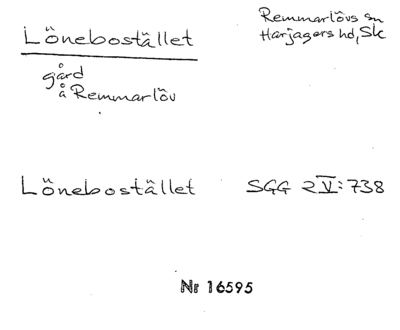 Lönebostället
Remmarlövs sn
Harjagers hd, Sk
gård
å Remmarlöv
Lönebostället SGG 2 V:738
Nr 16595